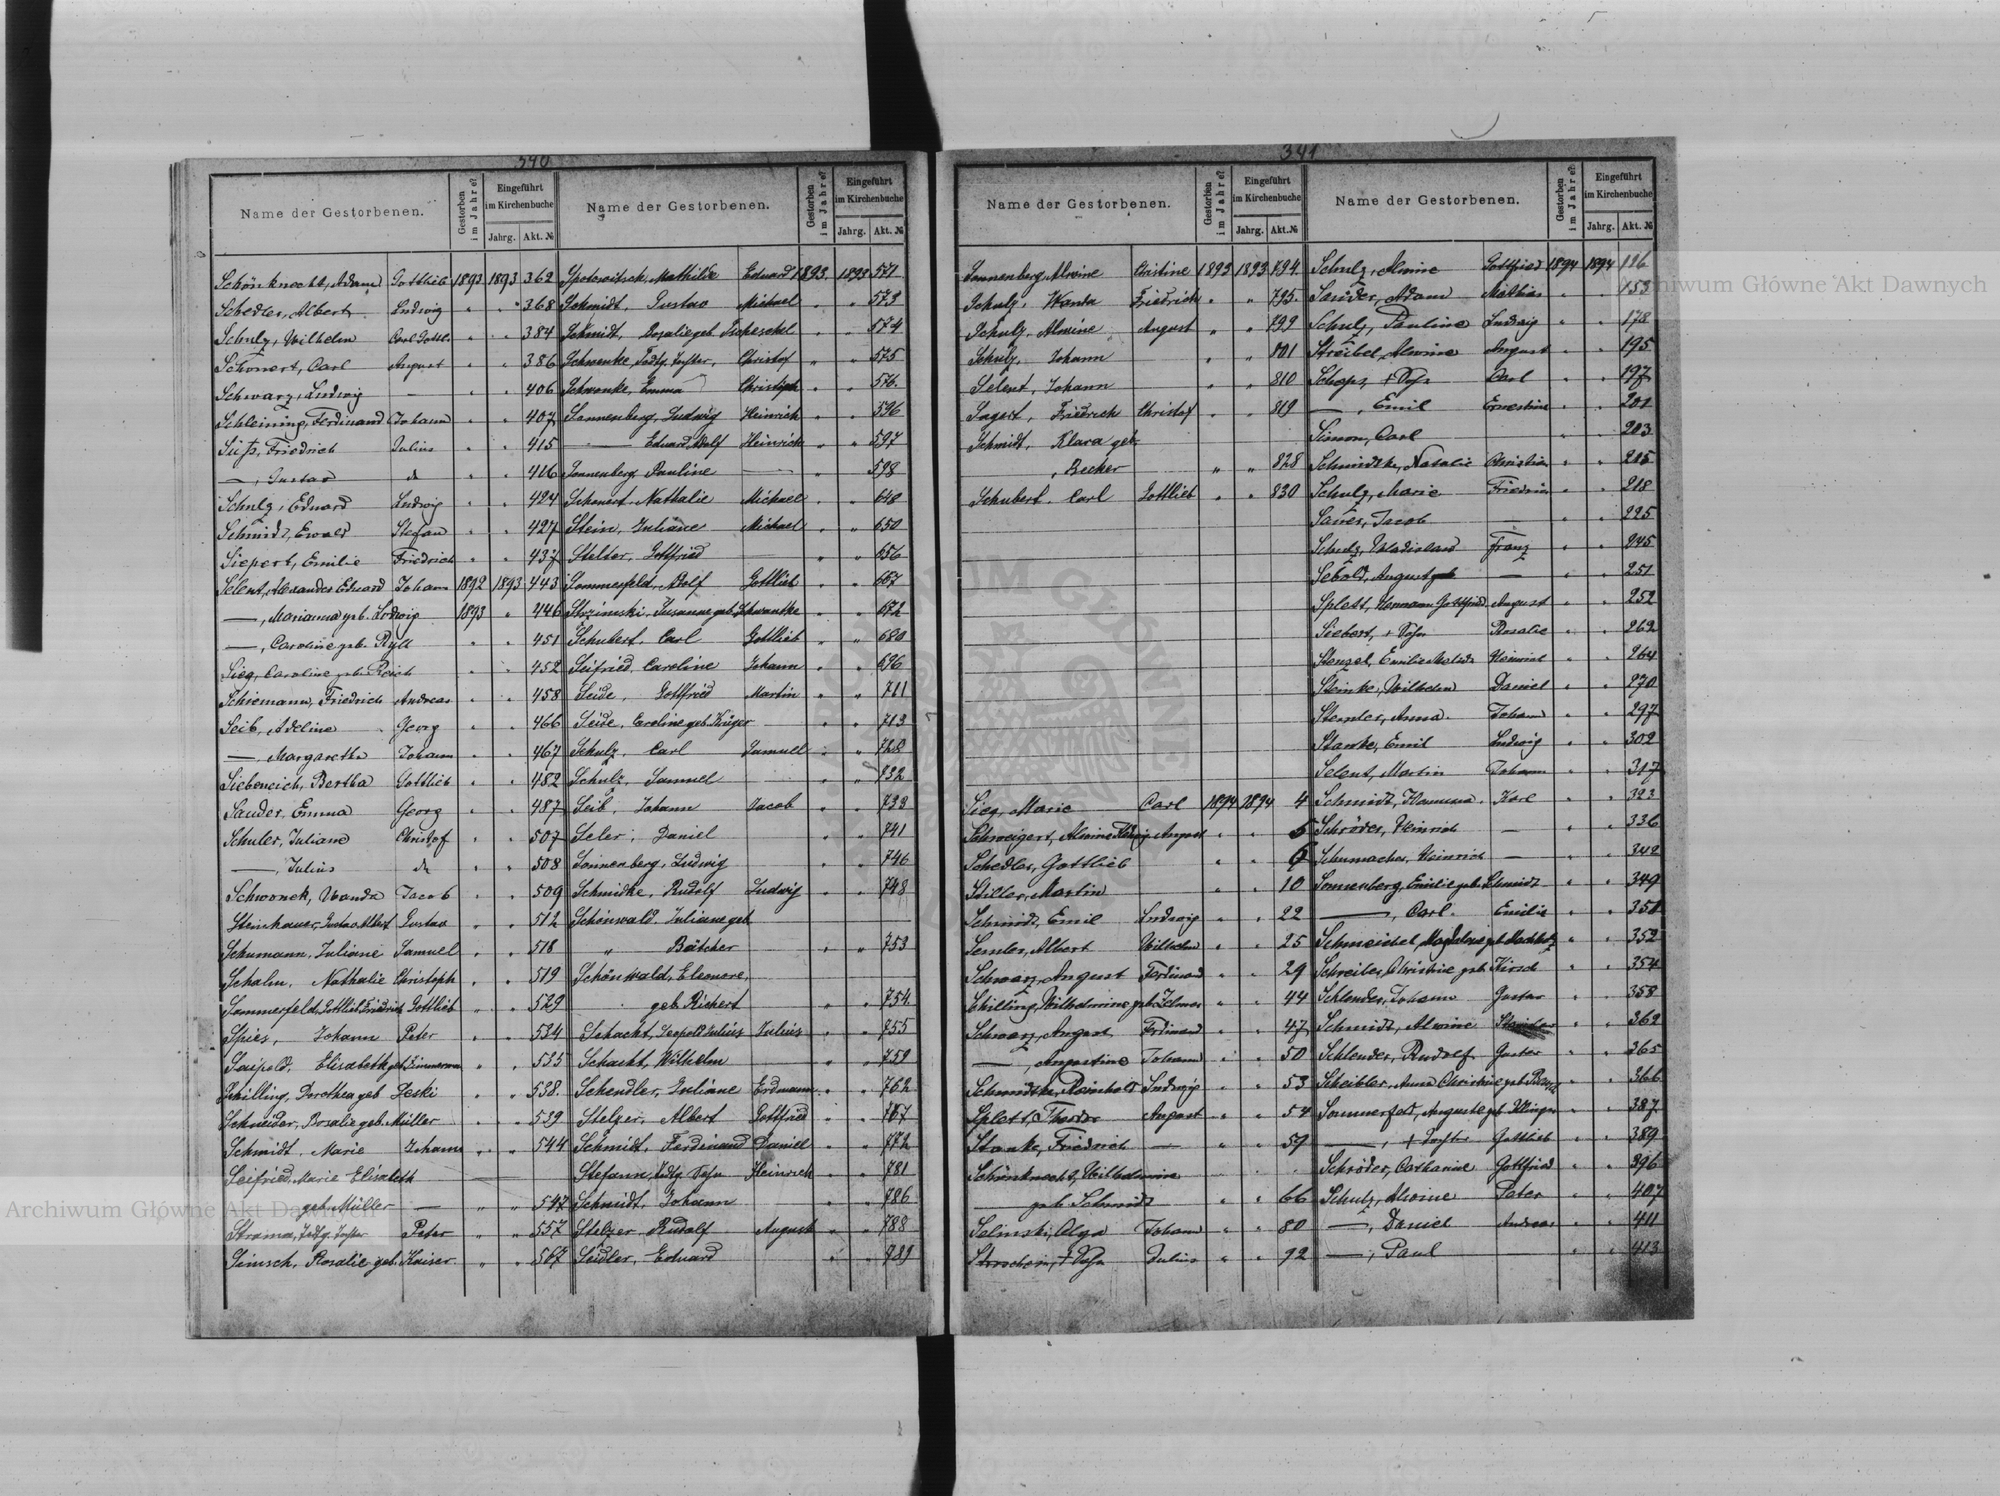 340
Name der Gestorbenen. Gestorben im Jahre? Eingeführt im Kirchenbuche Jahrg. Akt. №
Schönknecht, Adam Gottlieb 1893 1893 362
Schedler, Albert Ludwig " " 368
Schulz, Wilhelm Carl Gottl. " " 384
Schönert, Carl August " " 386
Schwarz, Ludwig — " " 406
Schleining, Ferdinand Johann " " 407
Süß, Friedrich Julius " " 415
—, Gustav do " " 416
Schulz, Eduard Ludwig " " 424
Schmidt, Ewald Stefan " " 427
Siepert, Emilie Friedrich " " 437
Selent, Alexander Eduard Johann 1892 1893 443
—, Marianna geb. Ludwig 1893 " 446
—, Caroline geb. Ryll " " 451
Sieg, Caroline geb. Reich " " 452
Schiemann, Friedrich Andreas " " 458
Seib, Adeline Georg " " 466
—, Margaretha Johann " " 467
Siebeneich, Bertha Gottlieb " " 482
Sauder, Emma Georg " " 487
Schuler, Juliane Christof " " 507
—, Julius do " " 508
Schwonek, Wanda Jacob " " 509
Steinhauer, Gustav Albert Gustav " " 512
Schumann, Juliane Samuel " " 518
Schalm, Nathalie Christoph " " 519
Sommerfeld, Gottlieb Friedrich Gottlieb " " 529
Spies, Johann Peter " " 534
Elisabeth geb. Zimmerman " " 535
Schilling, Dorothea geb Jeski " " 538.
Schneider, Rosalie geb. Müller " " 539
Schmidt, Marie Johann " " 544
Seifried, Marie Elisabeth
geb. Müller — " " 547
Strama, Todtg. Tochter Peter " " 557
Simsch, Rosalie geb. Kaiser " " 567
Name der Gestorbenen. Gestorben im Jahre? Eingeführt im Kirchenbuche Jahrg. Akt. №
Mathilde Eduard 1893. 1893 571
Schmidt, Gustav Michael " " 573
Schmidt, Rosalie geb " " 574
Schwenke, Todtg. Tochter, Christof " " 575
Schwenke, Emma Christoph " " 576.
Sonnenberg, Ludwig Heinrich " " 596
— Eduard Adolf Heinrich " " 597
Sonnenberg, Pauline — " 598
Schonert, Nathalie Michael " " 648
Stein, Juliane Michael " " 650
Stelter, Gottfried — " " 656
Sommerfeld, Adolf Gottlieb " " 667
Susanne geb. Schwantke " " 672
Schubert, Carl Gottlieb " " 680
Seifried, Caroline Johann " " 696
Seide, Gottfried Martin " " 711
Seide, Eveline geb. Krüger " " 713
Schulz, Carl Samuel " " 728
Schulz, Samuel " " 732
Seib, Johann Jacob " " 733
Seler, Daniel " " 741
Sonnenberg, Ludwig " " 746
Schmidke, Rudolf Ludwig " " 748
Schönwald, Juliane geb
" Bätcher " " 753
Schönwald, Eleonore,
geb. Richert " " 754
Schacht, Leopold Julius Julius " " 755
Schacht, Wilhelm " " 759
Schendler, Juliane Erdmann " " 762
Stelzer, Albert Gottfried " " 767
Schmidt, Ferdinand Daniel " " 772
Stefann, Todtg. Sohn Heinrich " " 781
Schmidt, Johann " " 786
Stelzer, Rudolf August " " 788
Seidler, Eduard " " 789
341
Name der Gestorbenen. Gestorben im Jahre? Eingeführt im Kirchenbuche Jahrg. Akt. №
Sonnenberg, Alwine Christine 1893 1893 794.
Schulz, Wanda Friedrich " " 795.
Schulz, Alwine August " " 799
Schulz, Johann " " 801
Selent, Johann " " 810
Sagert, Friedrich Christof " " 819
Schmidt, Klara geb.
" Becker " " 828
Schubert, Carl Gottlieb " " 830
Sieg, Marie Carl 1894 1894 4
Schweigert, Alwine August " " 5
Schedler, Gottlieb " " 6
Stiller, Martin " " 10
Schmidt, Emil Ludwig " " 22
Semler, Albert Wilhelm " " 25
Schwarz, August Ferdinand " " 29
Schilling, Wilhelmine geb. " " 44
Schwarz, August Ferdinand " " 47
—, Augustine Johann " " 50
Schmidtke, Reinhold Ludwig " " 53
Splett, Theodor August " " 54
Stanke, Friedrich — " " 59
Schönknecht, Wilhelmine
— geb Schmidt " " 66
Selinski, Olga Johann " " 80
+ Sohn Julius " " 92
Name der Gestorbenen. Gestorben im Jahre? Eingeführt im Kirchenbuche Jahrg. Akt. №
Schulz, Alwine Gottfried 1894 1894 116
Sauder, Adam Mathias " " 153
Schulz, Pauline Ludwig " " 178
Streibel, Alwine August " " 195
+ Sohn Carl " " 197
—, Emil Ernestine " " 201
Simon, Carl " 203
Schmidtke, Natalie Christian " " 215
Schulz, Marie Friedrich " " 218
Sauer, Jacob — " " 225
Schulz, Wladislaus Franz " " 245
Sebold, August — " " 251
Splett, Hermann Gottfried August " " 252
Siebert, + Sohn Rosalie " " 262
Stenzel, Emilie Heinrich " " 264
Steinke, Wilhelm Daniel " " 270
Stemler, Anna Johann " " 297
Stanke, Emil Ludwig " " 302
Selent, Martin Johann " " 317
Schmidt, Karl " " 323
Schröder, Heinrich — " " 336
Schumacher, Heinrich — " " 342
Sonnenberg, Emilie geb. Schmidt " " 349
—, Carl Emilie " " 351
Schmeichel, Magdalena geb. " " 352
Schreiber, Christine geb. Hirsch " " 354
Schlender, Johann Gustav " " 358
Schmidt, Alwine " " 362
Schlender, Rudolf Gustav " " 365
Scheibler, Anna Christine geb. " " 366
Sommerfeld, Auguste geb. " " 387
—, + Tochter Gottlieb " " 389
Schröder, Catharine Gottfried " " 396
Schulz, Alwine Peter " " 407
—, Daniel Andreas " " 411
—, Paul " " 413
Archiwum Główne Akt Dawnych
Archiwum Główne Akt Dawnych